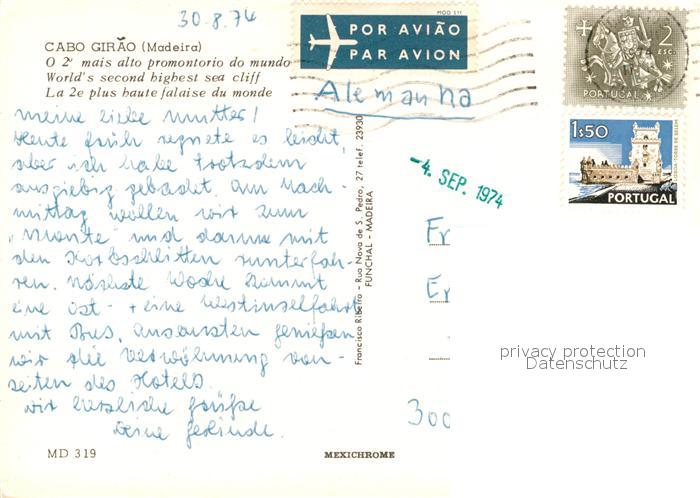 30.8.74
MOD 511
POR AVIÃO
PAR AVION
2
ESC.
PORTUGAL
CABO GIRÃO (Madeira)
O 2º mais alto promontorio do mundo
World's second highest sea cliff
La 2e plus haute falaise du monde
Alemanha
1$50
LISBOA TORRE DE BELEM
PORTUGAL
Meine liebe Mutter!
Heute früh regnete es leicht,
aber ich habe trotzdem
ausgiebig gebadet. Am Nach-
mittag wollen wir zum
"Monte" und dann mit
den Korbschlitten runterfah-
ren. Nächste Woche kommt
eine Ost- + eine Westinselfahrt
mit Bus. Ansonsten genießen
wir die Verwöhnung von-
seiten des Hotels.
Wir herzliche Grüße
Deine Gerlinde.
-4. SEP. 1974
Fr
Er
300
Francisco Ribeiro - Rua Nova de S. Pedro, 27 telef. 23930
FUNCHAL - MADEIRA
privacy protection
Datenschutz
MD 319
MEXICHROME